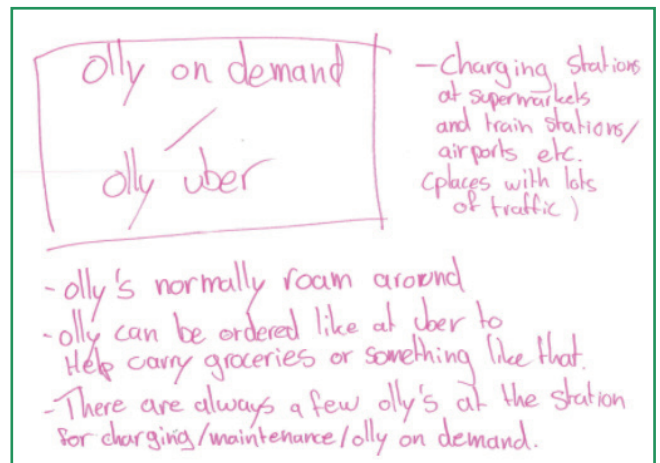 olly on demand
/
olly uber
- Charging stations
at supermarkets
and train stations/
airports etc.
(places with lots
of traffic)
- olly's normally roam around
- olly can be ordered like at uber to
Help carry groceries or something like that.
- There are always a few olly's at the station
for charging/maintenance/olly on demand.